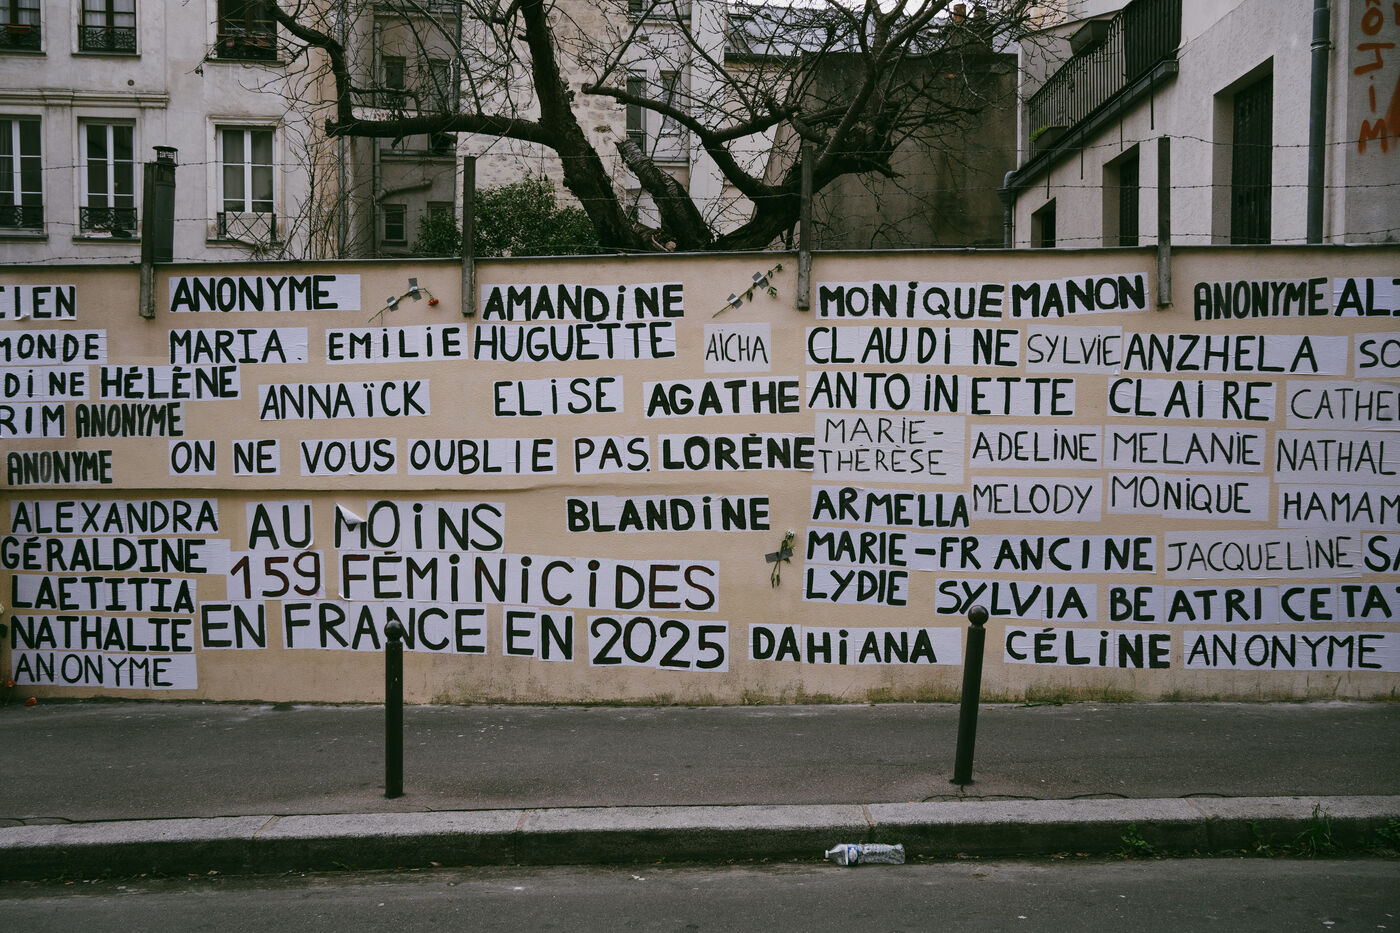 IEN ANONYME AMANDINE MONIQUE MANON ANONYME AL
MONDE MARIA EMILIE HUGUETTE AÏCHA CLAUDINE SYLVIE ANZHELA SO
DINE HÉLÈNE ANNAÏCK ELISE AGATHE ANTOINETTE CLAIRE CATHE
RIM ANONYME
ANONYME ON NE VOUS OUBLIE PAS LORÈNE MARIE-
THÉRÈSE ADELINE MELANIE NATHAL
ALEXANDRA AU MOINS BLANDINE ARMELLA MELODY MONIQUE HAMAM
GÉRALDINE 159 FÉMINICIDES MARIE-FRANCINE JACQUELINE SA
LAETITIA LYDIE SYLVIA BEATRICE TA
NATHALIE EN FRANCE EN 2025 DAHIANA CÉLINE ANONYME
ANONYME